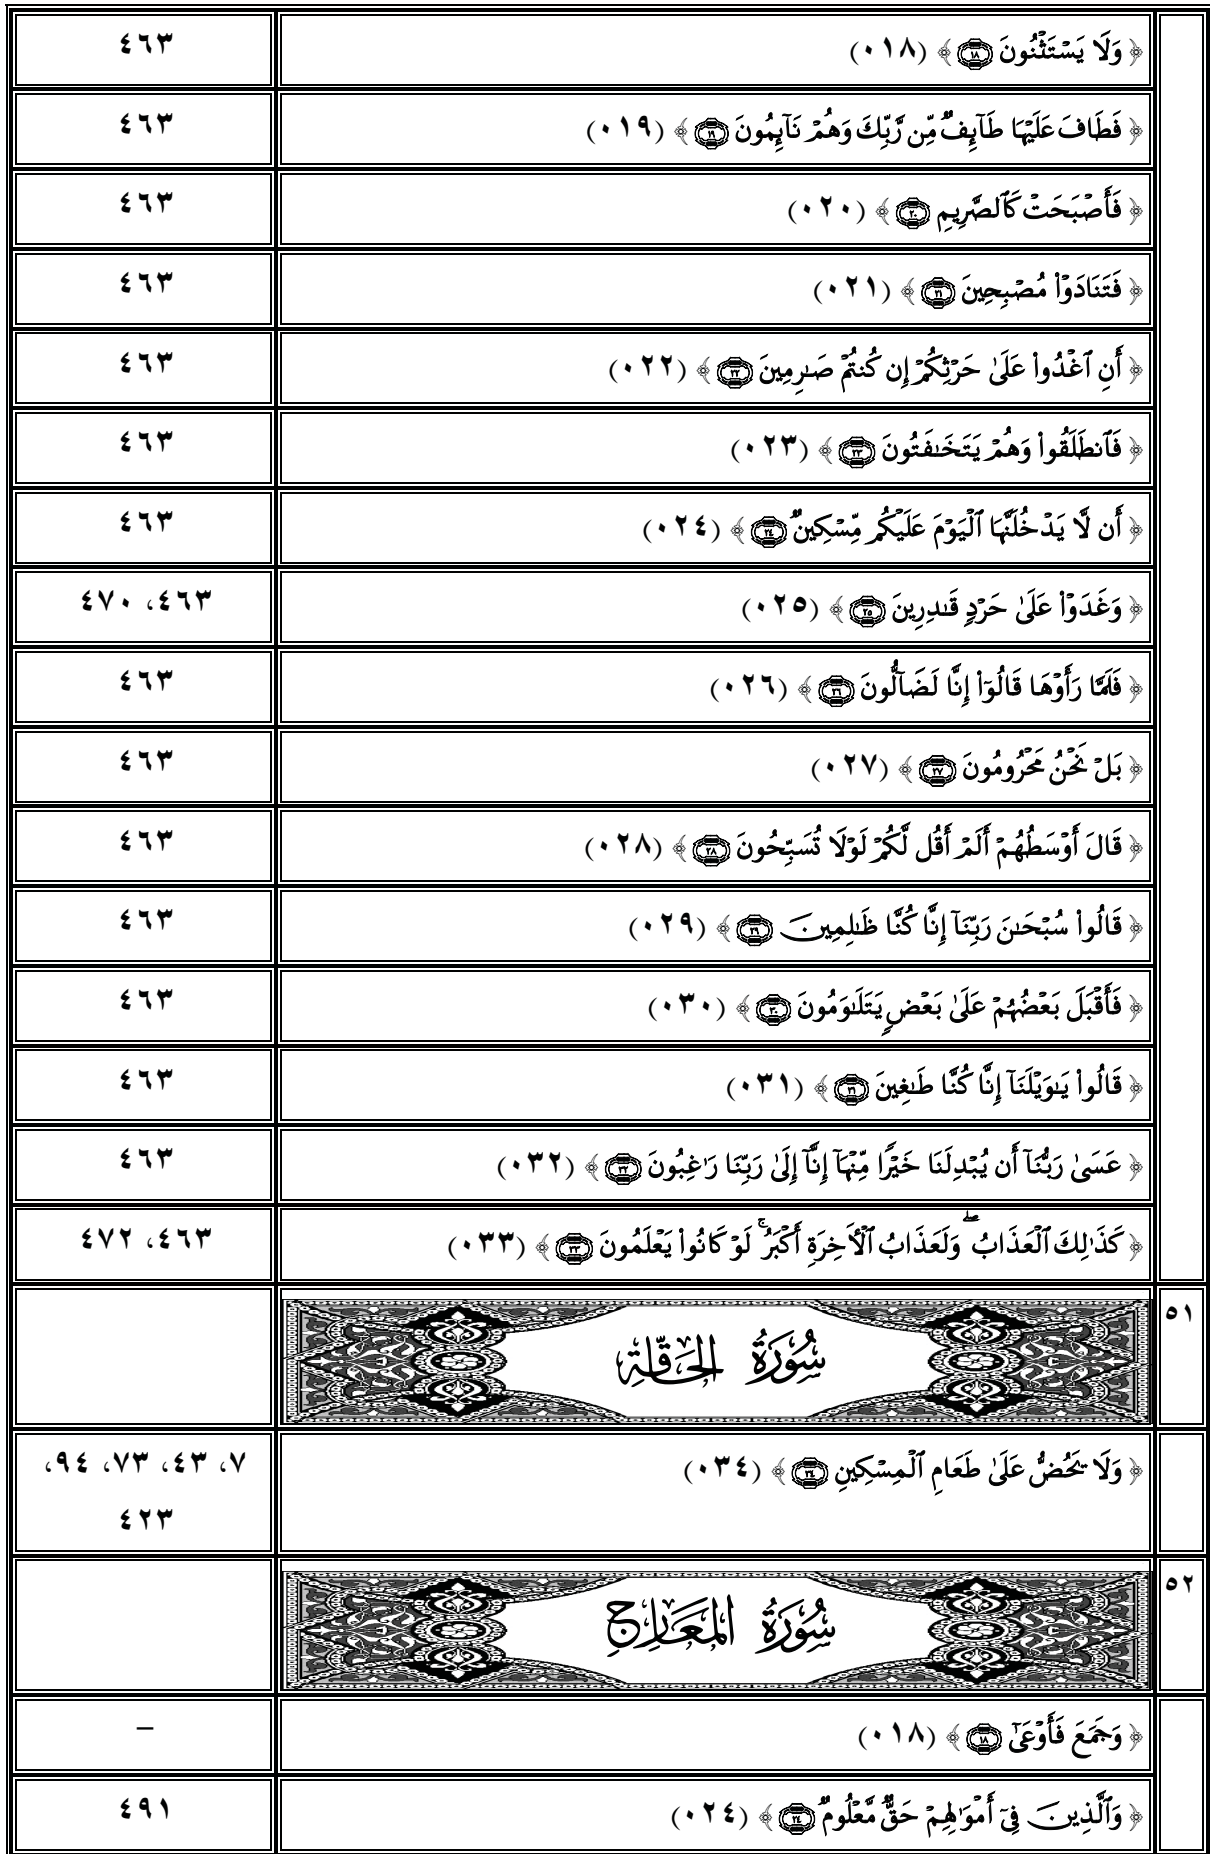 ﴿ وَلَا يَسْتَثْنُونَ ١٨ ﴾ (٠١٨) ٤٦٣
﴿ فَطَافَ عَلَيْهَا طَآئِفٌ مِّن رَّبِّكَ وَهُمْ نَآئِمُونَ ١٩ ﴾ (٠١٩) ٤٦٣
﴿ فَأَصْبَحَتْ كَٱلصَّرِيمِ ٢٠ ﴾ (٠٢٠) ٤٦٣
﴿ فَتَنَادَوْا۟ مُصْبِحِينَ ٢١ ﴾ (٠٢١) ٤٦٣
﴿ أَنِ ٱغْدُوا۟ عَلَىٰ حَرْثِكُمْ إِن كُنتُمْ صَـٰرِمِينَ ٢٢ ﴾ (٠٢٢) ٤٦٣
﴿ فَٱنطَلَقُوا۟ وَهُمْ يَتَخَـٰفَتُونَ ٢٣ ﴾ (٠٢٣) ٤٦٣
﴿ أَن لَّا يَدْخُلَنَّهَا ٱلْيَوْمَ عَلَيْكُم مِّسْكِينٌ ٢٤ ﴾ (٠٢٤) ٤٦٣
﴿ وَغَدَوْا۟ عَلَىٰ حَرْدٍ قَـٰدِرِينَ ٢٥ ﴾ (٠٢٥) ٤٦٣، ٤٧٠
﴿ فَلَمَّا رَأَوْهَا قَالُوٓا۟ إِنَّا لَضَآلُّونَ ٢٦ ﴾ (٠٢٦) ٤٦٣
﴿ بَلْ نَحْنُ مَحْرُومُونَ ٢٧ ﴾ (٠٢٧) ٤٦٣
﴿ قَالَ أَوْسَطُهُمْ أَلَمْ أَقُل لَّكُمْ لَوْلَا تُسَبِّحُونَ ٢٨ ﴾ (٠٢٨) ٤٦٣
﴿ قَالُوا۟ سُبْحَـٰنَ رَبِّنَآ إِنَّا كُنَّا ظَـٰلِمِينَ ٢٩ ﴾ (٠٢٩) ٤٦٣
﴿ فَأَقْبَلَ بَعْضُهُمْ عَلَىٰ بَعْضٍ يَتَلَـٰوَمُونَ ٣٠ ﴾ (٠٣٠) ٤٦٣
﴿ قَالُوا۟ يَـٰوَيْلَنَآ إِنَّا كُنَّا طَـٰغِينَ ٣١ ﴾ (٠٣١) ٤٦٣
﴿ عَسَىٰ رَبُّنَآ أَن يُبْدِلَنَا خَيْرًا مِّنْهَآ إِنَّآ إِلَىٰ رَبِّنَا رَٰغِبُونَ ٣٢ ﴾ (٠٣٢) ٤٦٣
﴿ كَذَٰلِكَ ٱلْعَذَابُ ۖ وَلَعَذَابُ ٱلْـَٔاخِرَةِ أَكْبَرُ ۚ لَوْ كَانُوا۟ يَعْلَمُونَ ٣٣ ﴾ (٠٣٣) ٤٦٣، ٤٧٢
٥١ سُورَةُ الحَاقَّةِ
﴿ وَلَا يَحُضُّ عَلَىٰ طَعَامِ ٱلْمِسْكِينِ ٣٤ ﴾ (٠٣٤) ٧، ٤٣، ٧٣، ٩٤،
٤٢٣
٥٢ سُورَةُ المَعَارِجِ
﴿ وَجَمَعَ فَأَوْعَىٰٓ ١٨ ﴾ (٠١٨) –
﴿ وَٱلَّذِينَ فِىٓ أَمْوَٰلِهِمْ حَقٌّ مَّعْلُومٌ ٢٤ ﴾ (٠٢٤) ٤٩١